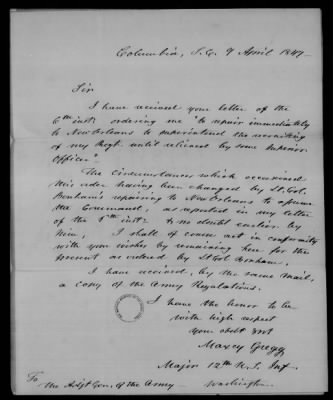 Columbia, S.C. 9 April 1847—
Sir
I have received your letter of the
6th inst: ordering me "to repair immediately
to New Orleans to superintend the recruiting
of my Regt. until relieved by some Superior
Officer".
The Circumstances which occasioned
this order having been changed by Lt. Col.
Bonham's repairing to New Orleans to assume
the Command, as reported in my letter
of the inst: & no doubt earlier by
him, I shall of course act in conformity
with your wishes by remaining here for the
present as ordered by Lt Col. Bonham.
I have received, by the same mail,
a copy of the Army Regulations.
I have the honor to be
with high respect
your obdt svt
Maxcy Gregg
Major 12th U.S. Inf
To
The Adjt Gen. of the Army—
Washington